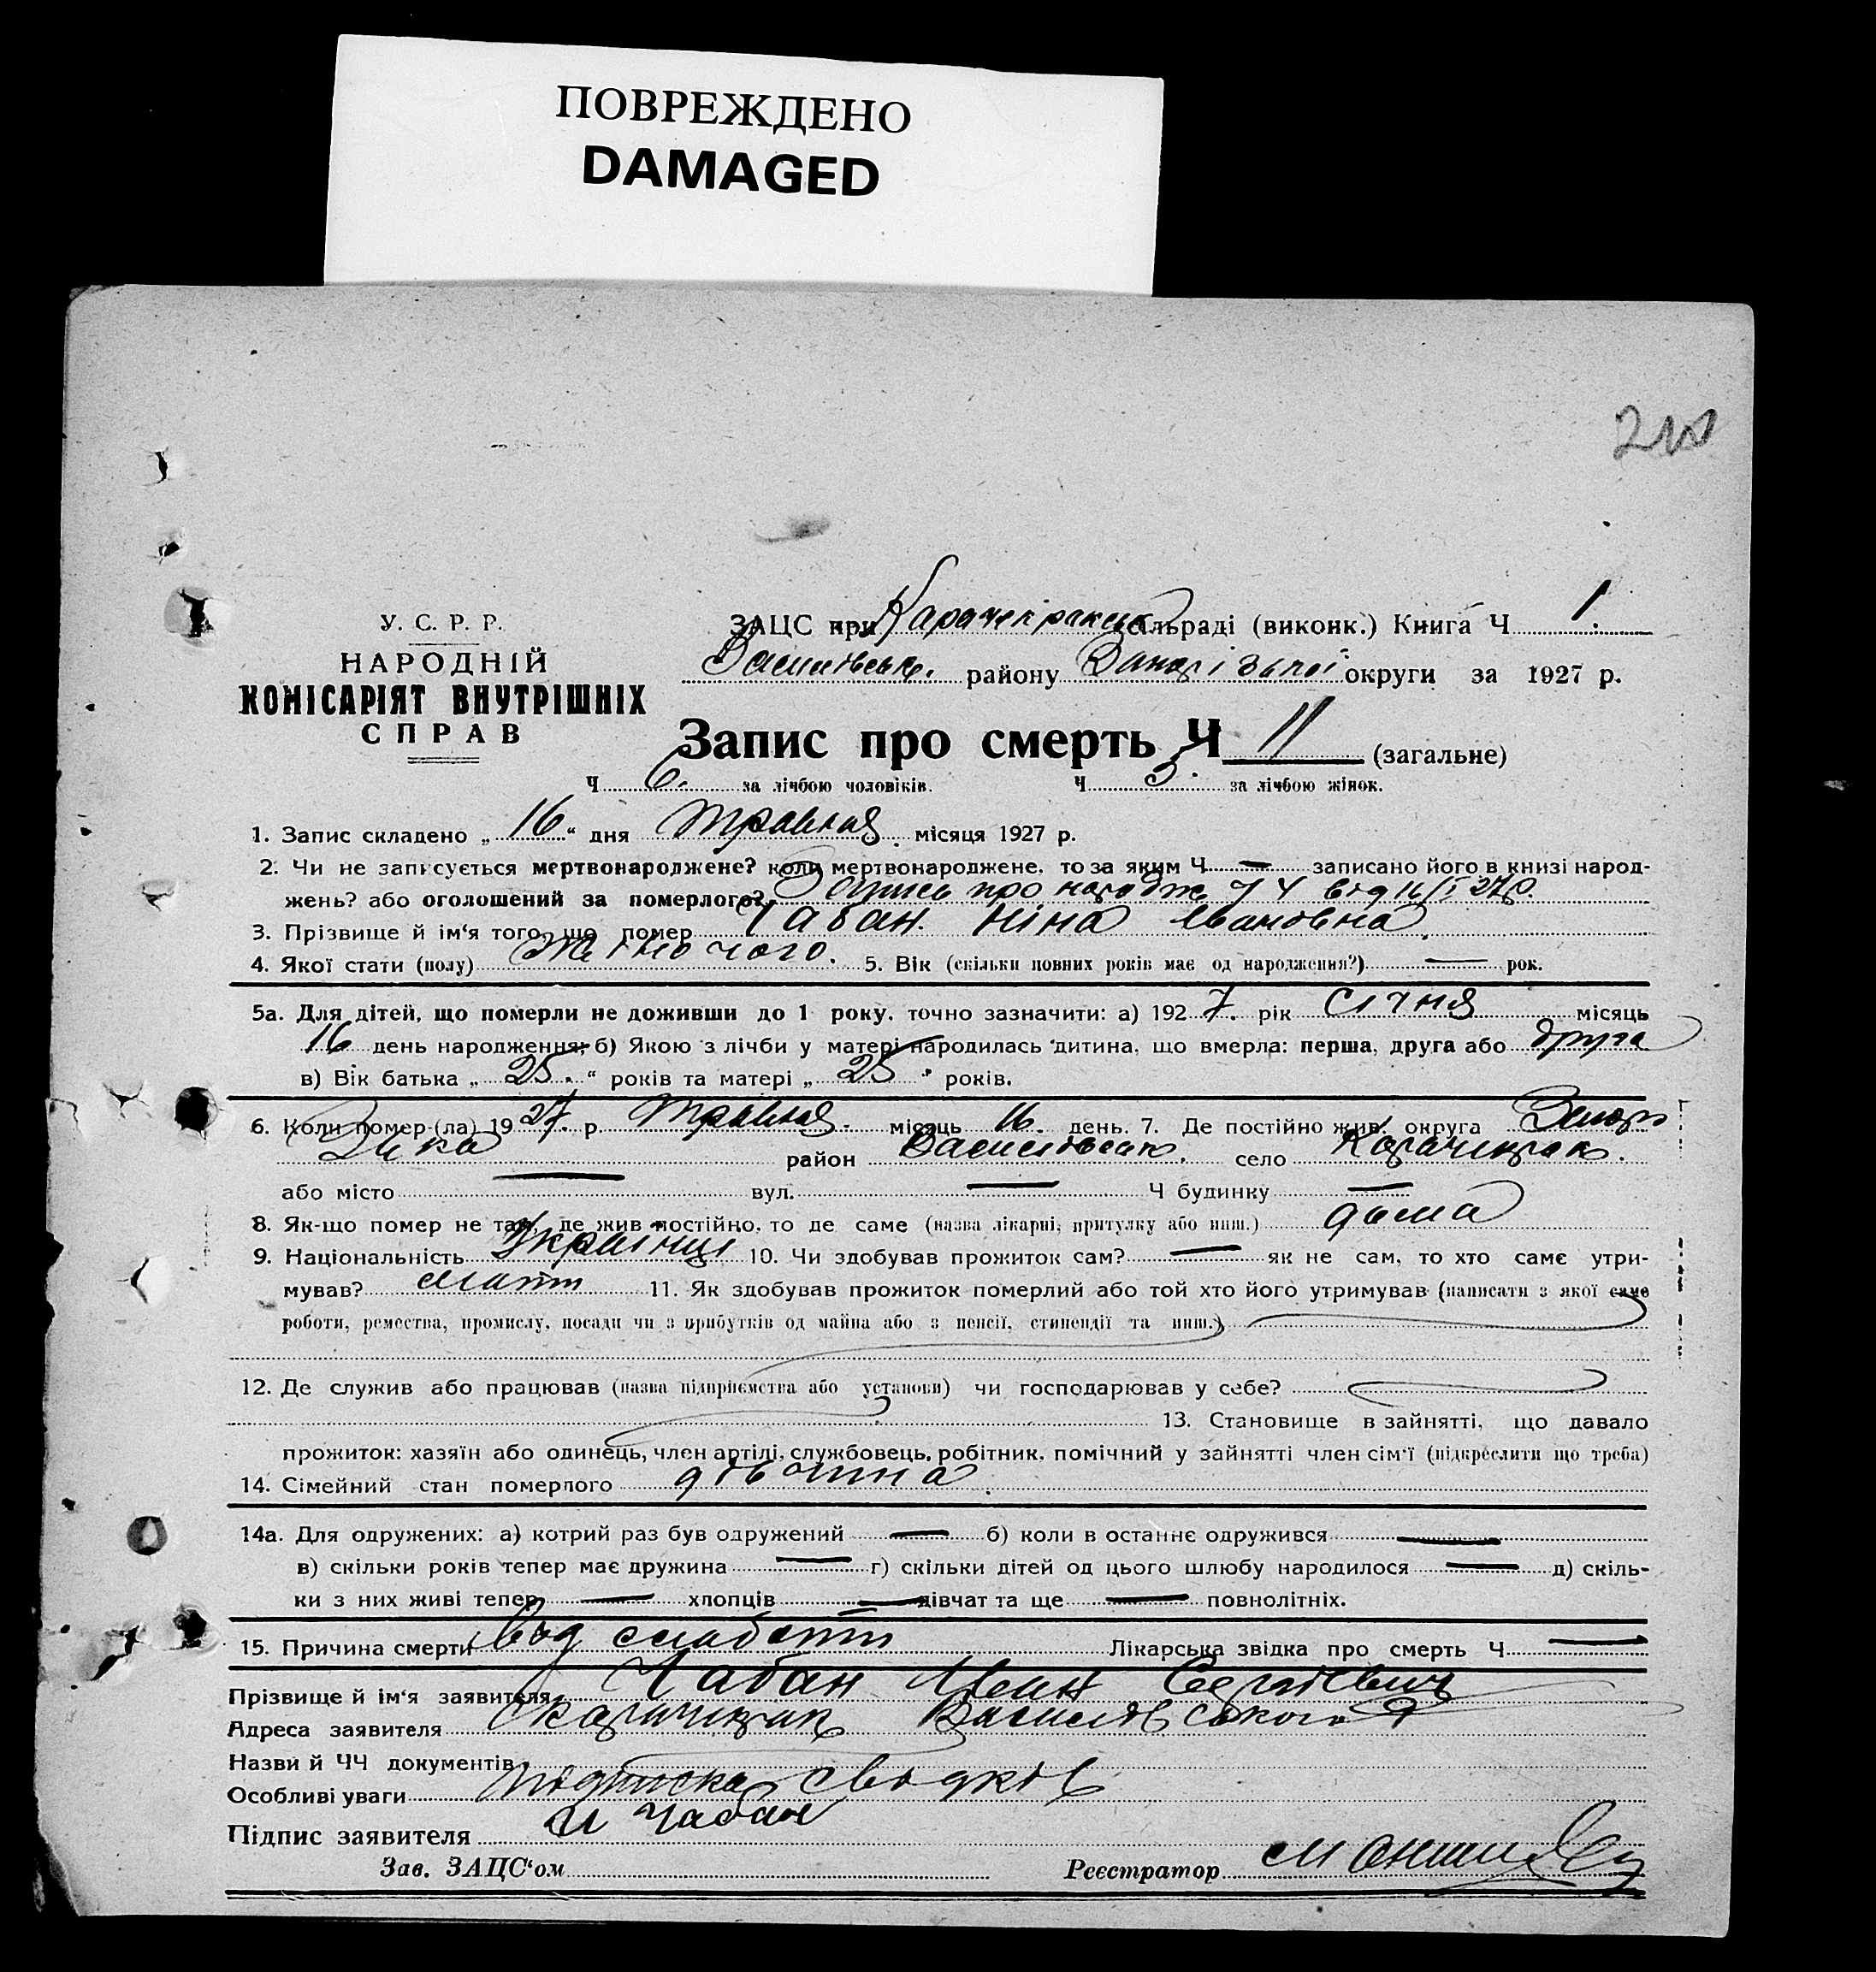 ПОВРЕЖДЕНО
DAMAGED
У. С. Р. Р.
НАРОДНІЙ
КОМІСАРІЯТ ВНУТРІШНІХ
СПРАВ
ЗАЦС при Карачекракськ сільраді (виконк.) Книга Ч 1.
Василівськ. району округи за 1927 р.
Запис про смерть Ч 11 (загальне)
Ч 6. за лічбою чоловіків. Ч 5. за лічбою жінок.
1. Запис складено „ 16 “ дня Травня місяця 1927 р.
2. Чи не записується мертвонароджене? коли мертвонароджене, то за яким Ч — записано його в книзі народ-
жень? або оголошений за померлого? Запись про народж
3. Прізвище й ім'я того, що помер Чабан. Ніна Івановна.
4. Якої стати (полу) Жіночого. 5. Вік (скільки повних років має од народження?) — рок.
5а. Для дітей, що померли не доживши до 1 року, точно зазначити: а) 1927. рік Січня місяць
16 день народження; б) Якою з лічби у матері народилась дитина, що вмерла: перша, друга або друга
в) Вік батька „ 25. “ років та матері „ 25 “ років.
6. Коли помер (ла) 1927. р. Травня. місяць 16. день. 7. Де постійно жив: округа Запорі
район Василівськ. село Карачекрак.
або місто — вул. — Ч будинку —
8. Як-що помер не там, де жив постійно, то де саме (назва лікарні, притулку або инш.) дома
9. Національність Українці 10. Чи здобував прожиток сам? — як не сам, то хто саме утри-
мував? мати 11. Як здобував прожиток померлий або той хто його утримував (написати з якої саме
роботи, ремества, промислу, посади чи з прибутків од майна або з пенсії, стипендії та инш.)
12. Де служив або працював (назва підприємства або установи) чи господарював у себе?
13. Становище в зайнятті, що давало
прожиток: хазяїн або одинець, член артілі, службовець, робітник, помічний у зайнятті член сім'ї (підкреслити що треба)
14. Сімейний стан померлого дівчина.
14а. Для одружених: а) котрий раз був одружений — б) коли в останнє одружився —
в) скільки років тепер має дружина — г) скільки дітей од цього шлюбу народилося — д) скіль-
ки з них живі тепер — хлопців — дівчат та ще — повнолітніх.
15. Причина смерти Від слабости Лікарська звідка про смерть Ч —
Прізвище й ім'я заявителя Чабан Іван Сергієвич
Адреса заявителя Карачекрак Василівського
Назви й ЧЧ документів
Особливі уваги підписка свідків
Підпис заявителя И Чабан
Зав. ЗАЦС'ом Реєстратор